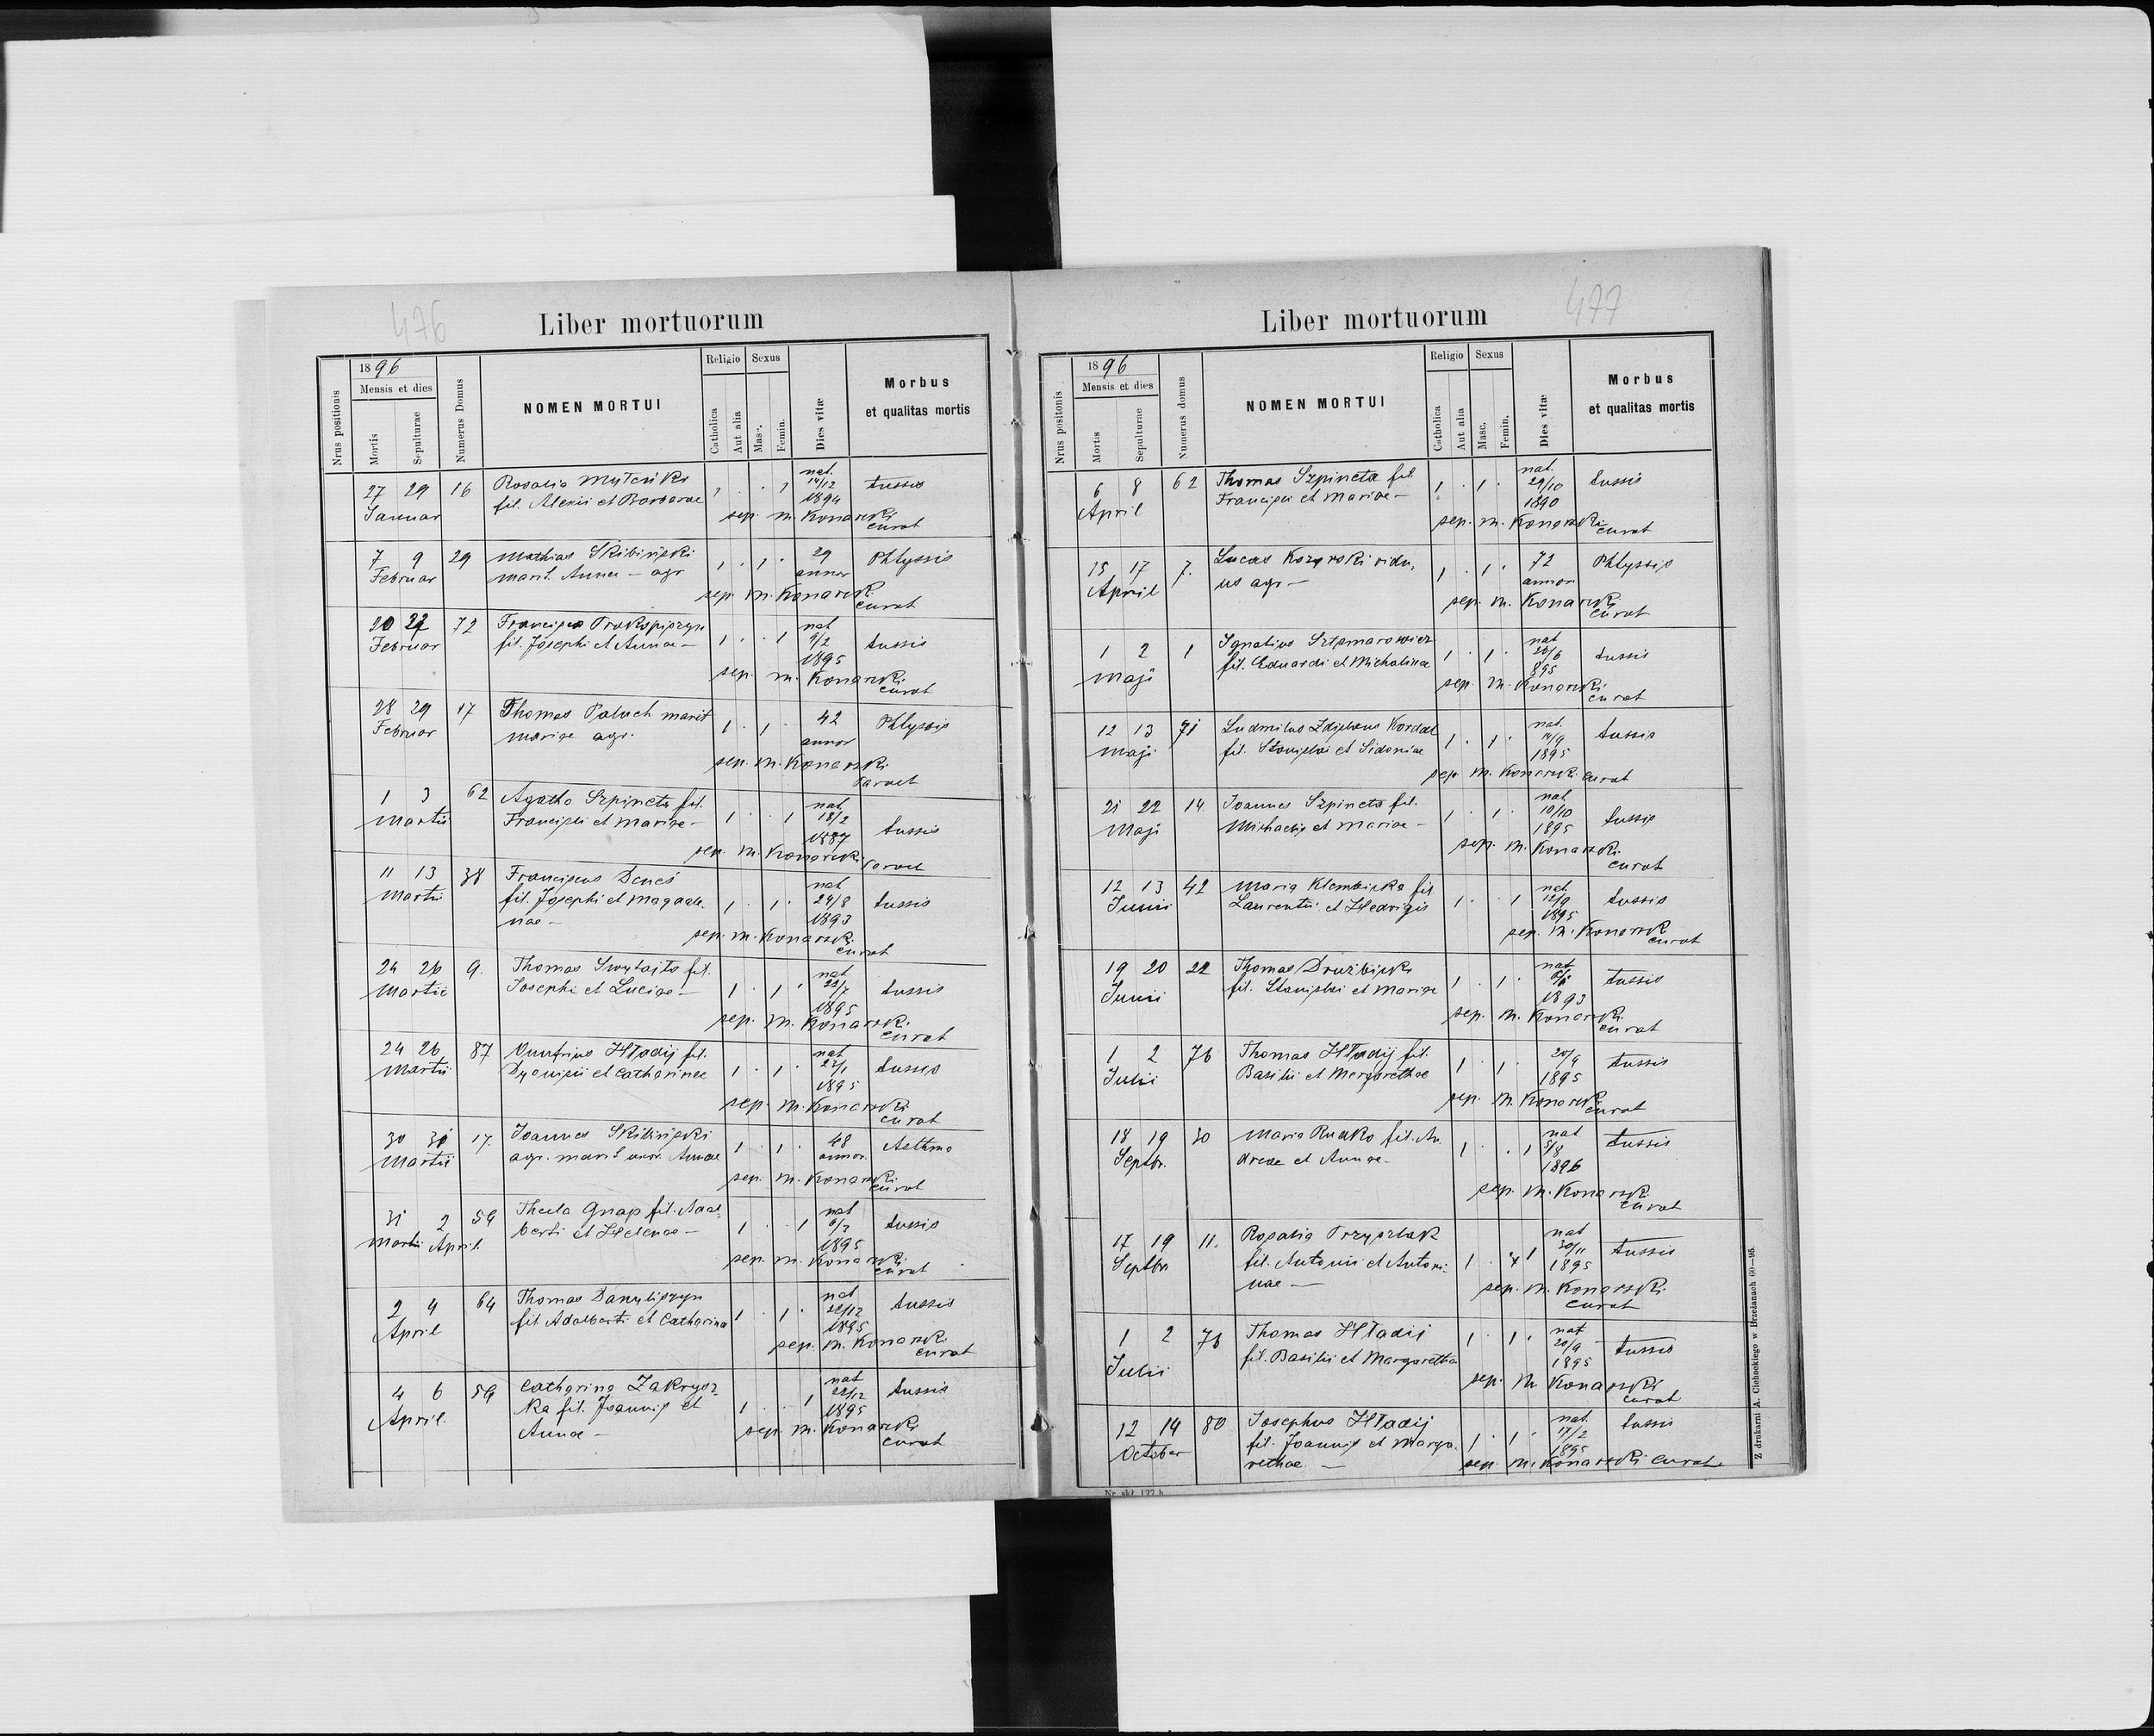 476
Liber mortuorum
Nrus positionis
1896
Mensis et dies
Mortis
Sepulturae
Numerus Domus
NOMEN MORTUI
Religio
Catholica
Aut alia
Sexus
Masc.
Femin.
Dies vitæ
Morbus
et qualitas mortis
27 29 16 Rosalia 1 . . 1 nat. 14/12 1894 tussis
Januar fil. Alexii et Barbarae
sep. M. Konarski
curat
7 9 29 Mathias Skibiński 1 . 1 . 29 annor Phtyssis
Februar marit. Annae — agr
sep. M. Konarski
curat
20 22 72 Francisca Prokopiszyn 1 . . 1 nat 9/2 1895 tussis
Februar fil. Josephi et Annae —
sep. M. Konarski
curat
28 29 17 Thomas Paluch marit 1 . 1 . 42 annor Phtyssis
Februar Mariae agr.
sep. M. Konarski
curat
1 3 62 Agatha Szpineta fil. 1 . . 1 nat 18/2 1887 tussis
Martii Francisci et Mariae —
sep. M. Konarski
curat
11 13 38 Franciscus Deneś 1 . 1 . nat 24/8 1893 tussis
Martii fil. Josephi et Magdale-
nae —
sep. M. Konarski
curat
24 26 9. Thomas fil. 1 . 1 . nat 1895 tussis
Martii Josephi et Luciae —
sep. M. Konarski
curat
24 26 87 Onufrius Hładij fil. 1 . 1 . nat 1895 tussis
Martii Dyonisii et Catharinae
sep. M. Konarski
curat
30 31 17 Joannes Skibiński 1 . 1 . 48 annor. Asthma
Martii agr. marit uxor. Annae
sep. M. Konarski
curat
31 2 59 Thecla Gnap fil. Adal- 1 . . 1 nat 1895 tussis
Martii April berti et Helenae —
sep. M. Konarski
curat
2 4 64 Thomas Danyliszyn 1 . 1 . nat 22/12 1895 tussis
April fil Adalberti et Catharina
sep. M. Konarski
curat
4 6 59 Catharina Zakrysz- 1 . . 1 nat 1895 tussis
April. ka fil. Joannis et
Annae —
sep. M. Konarski
curat
477
Liber mortuorum
Nrus positonis
1896
Mensis et dies
Mortis
Sepulturae
Numerus domus
NOMEN MORTUI
Religio
Catholica
Aut alia
Sexus
Masc.
Femin.
Dies vitæ
Morbus
et qualitas mortis
6 8 62 Thomas Szpineta fil 1 . 1 . nat. 29/10 1890 tussis
April Francisci et Mariae —
sep. M. Konarski
curat
15 17 7. Lucas Kozorski vidu- 1 . 1 . 72 annor Phtyssis
April us agr —
sep. M. Konarski
curat
1 2 1 Ignatius 1 . 1 . nat 895 tussis
Maji fil. Eduardi et Michalinae
sep. M. Konarski
curat
12 13 71 Ludmilus Kordal 1 . 1 . nat. 14/9 1895 tussis
Maji fil. Stanislai et Sidoniae
sep. M. Konarski curat
21 22 14 Joannes Szpineta fil. 1 . 1 . nat 10/10 1895 tussis
Maji Michaelis et Mariae —
sep. M. Konarski
curat
12 13 42 Maria Klembicka fil 1 . . 1 nat 12/9 1895 tussis
Junii Laurentii et Hedvigis
sep. M. Konarski
curat
19 20 22 Thomas Drużbicki 1 . 1 . nat 1893 tussis
Junii fil. Stanislai et Mariae
sep. M. Konarski
curat
1 2 76 Thomas Hładij fil. 1 . 1 . 20/9 1895 tussis
Julii Basilii et Margarethae
sep. M. Konarski
curat
18 19 30 Maria Rudko fil. An- 1 . . 1 nat 5/8 1896 tussis
Septbr. dreae et Annae —
sep. M. Konarski
curat
17 19 11. Rosalia Przyszlak 1 . 1 nat 30/11 1895 tussis
Septbr fil. Antonii et Antoni-
nae —
sep. M. Konarski
curat
1 2 76 Thomas Hładij 1 . 1 . nat 20/9 1895 tussis
Julii fil. Basilii et Margaretha
sep. M. Konarski
curat
12 14 80 Josephus Hładij 1 . 1 . nat 17/2 1895 tussis
October fil. Joannis et Marga-
rethae —
sep M. Konarski curat
Z drukarni A. Cichockiego w Brzeżanach 60—96.
Nr. skł. 177 b